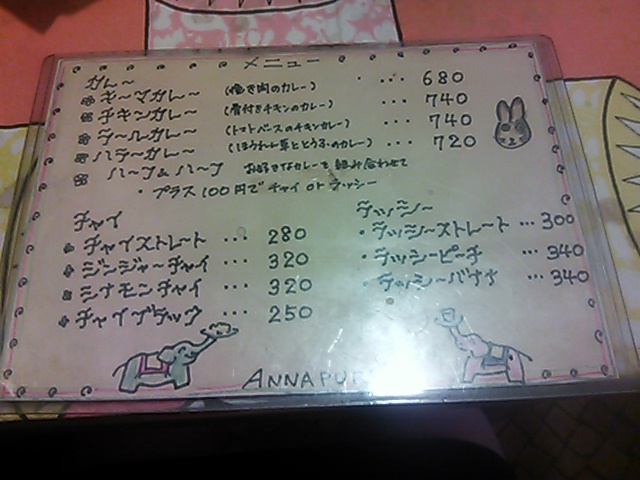 メニュー
カレー
キーマカレー (挽き肉のカレー) ... 680
チキンカレー (骨付きチキンのカレー) ... 740
ラールカレー (トマトベースのチキンカレー) ... 740
ハラーカレー (ほうれん草ととうふのカレー) ... 720
ハーフ&ハーフ お好きなカレーを組み合わせて
・プラス100円でチャイ or ラッシー
チャイ
チャイストレート ... 280
ジンジャーチャイ ... 320
シナモンチャイ ... 320
チャイブラック ... 250
ラッシー
・ラッシーストレート ... 300
・ラッシーピーチ ... 340
・ラッシーバナナ ... 340
ANNAPUR